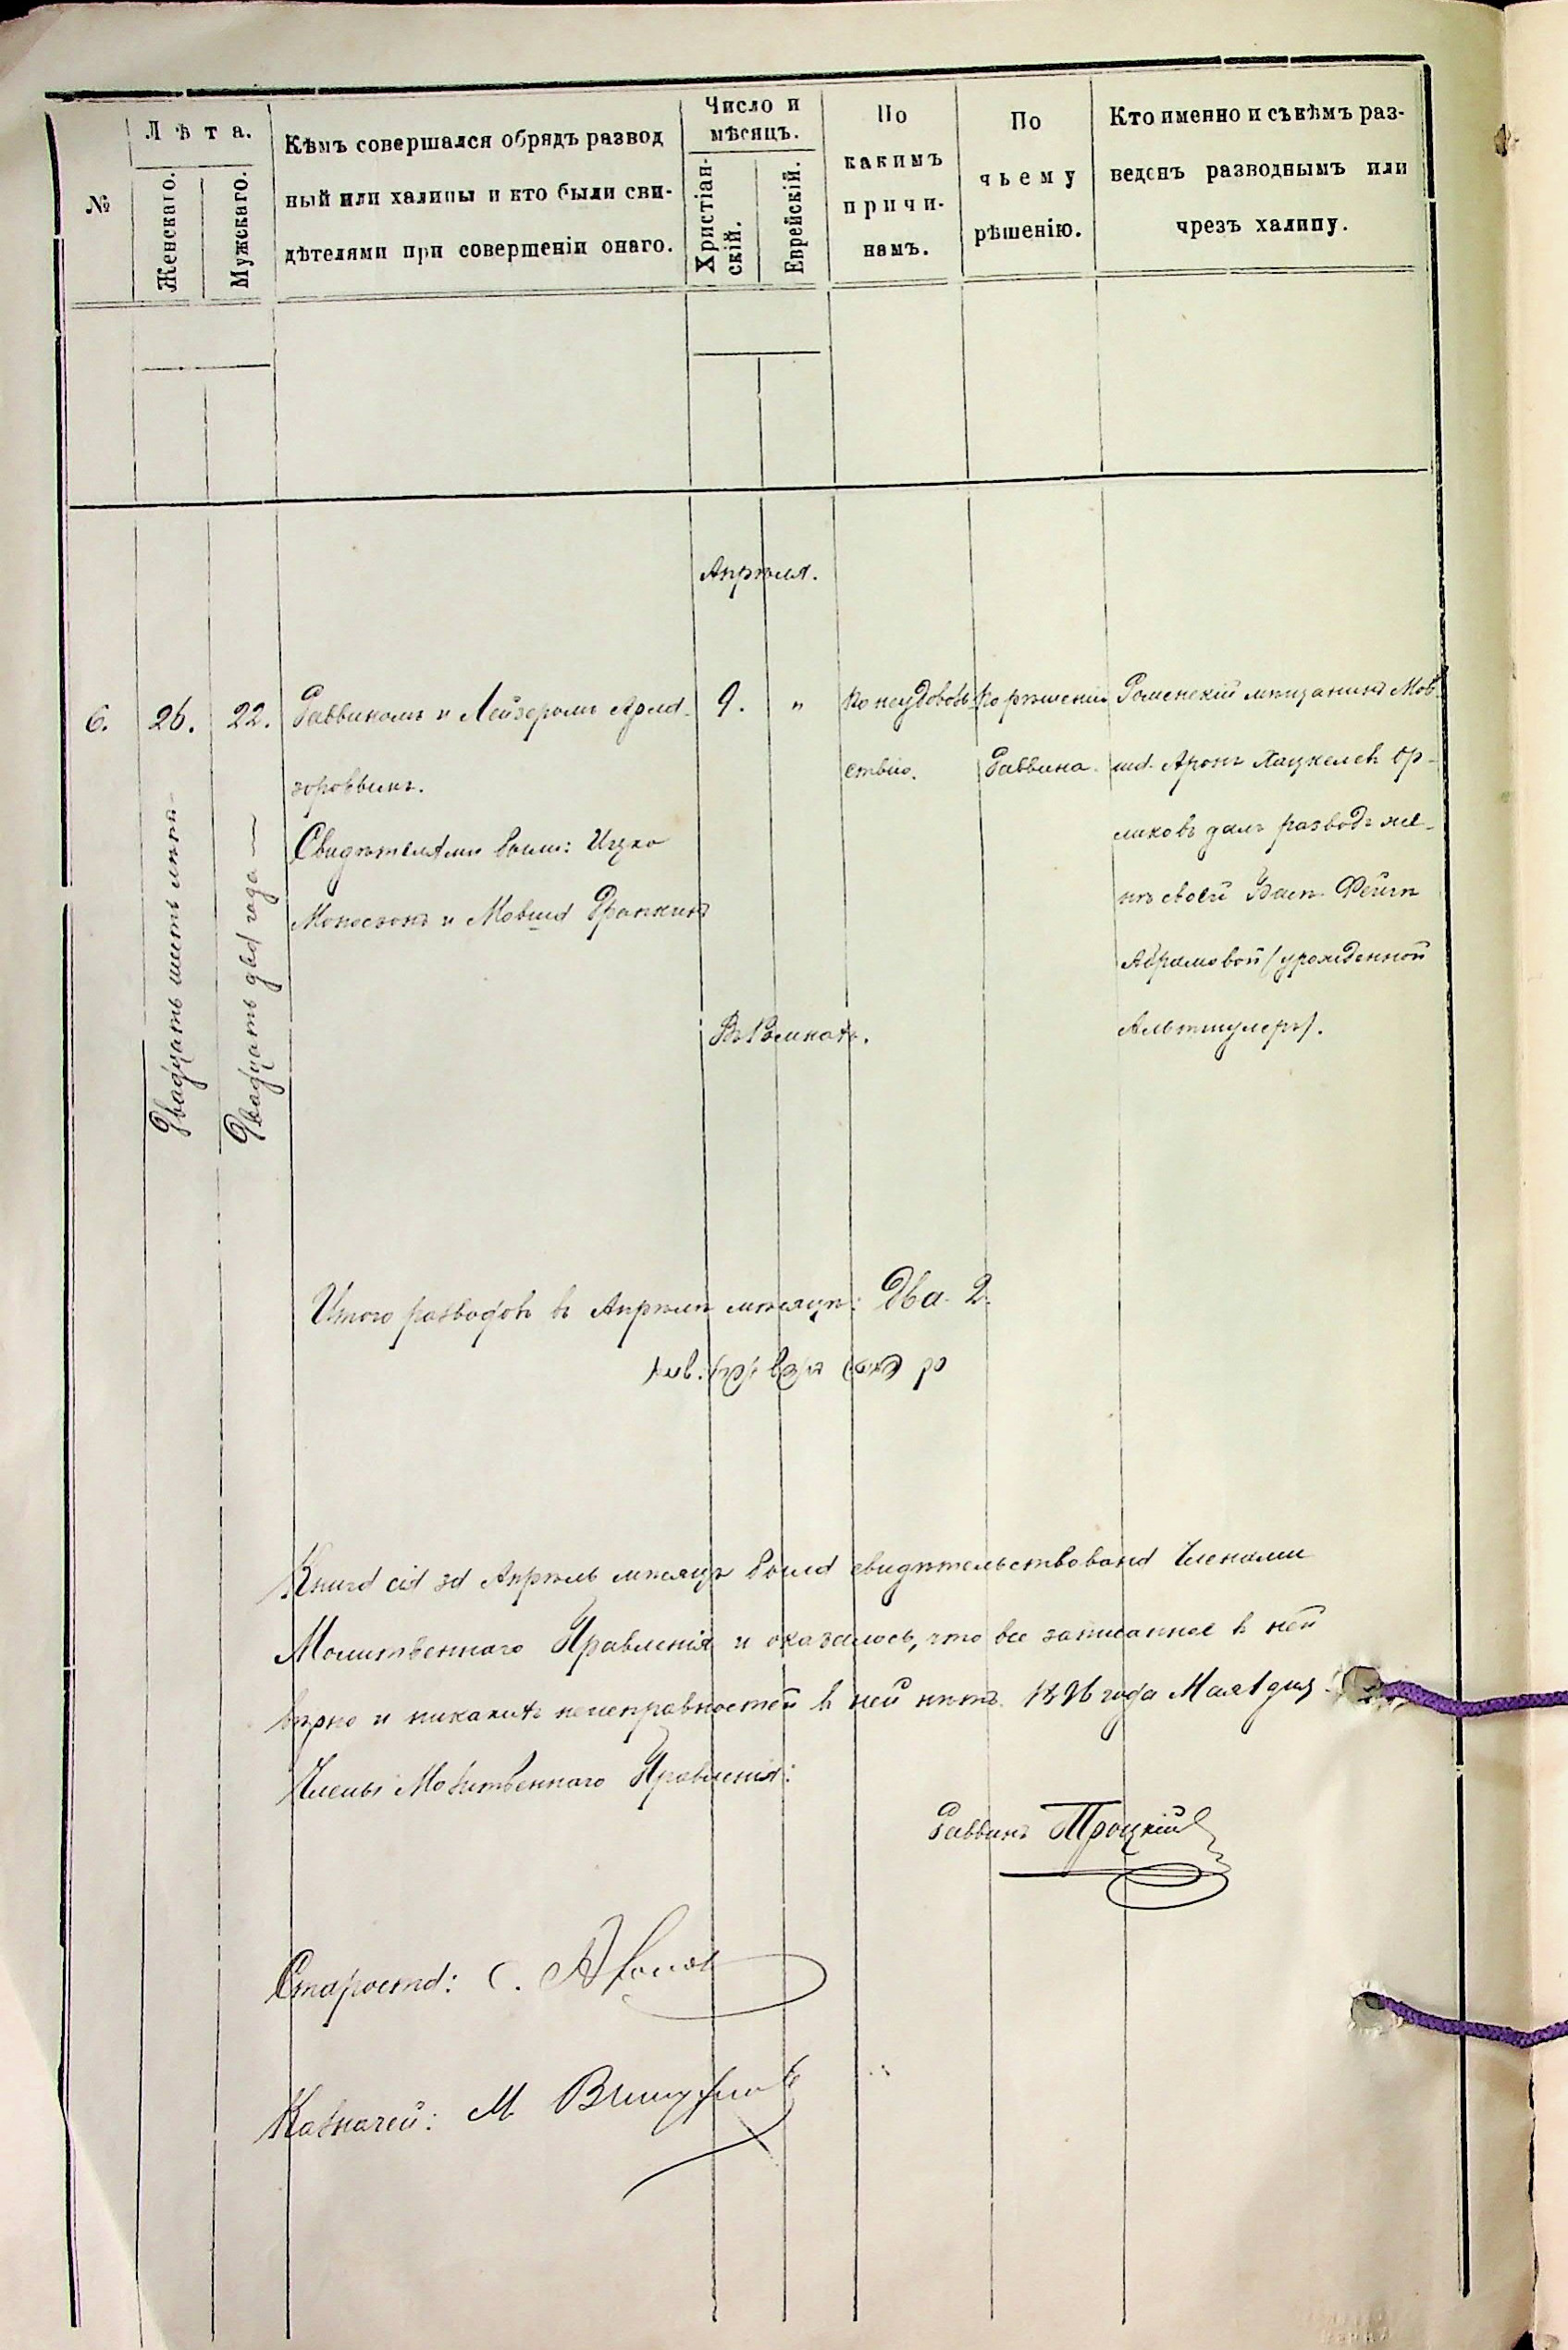 №
Лѣта.
Женскаго.
Мужскаго.
Кѣмъ совершался обрядъ развод
ный или халицы и кто были сви-
дѣтелями при совершеніи онаго.
Число и
мѣсяцъ.
Христіан-
скій.
Еврейскій.
По
какимъ
причи-
намъ.
По
чьему
рѣшенію.
Кто именно и съ кѣмъ раз-
веденъ разводнымъ или
чрезъ халицу.
Апрѣля.
6.
26.
Двадцать шесть лѣтъ
22.
Двадцать два года —
Раввиномъ и Лейзеромъ
Свидѣтелями были: Ицко
Моносзонъ и Мовша Фрапкинъ
9.
"
Въ Ромнахъ.
По неудоволь-
ствію.
По рѣшенію
Раввина.
Роменскій мѣщанинъ Мов-
ша-Аронъ Хацкелевъ Ор-
ликовъ далъ разводъ же-
нѣ своей Фейгѣ
Абрамовой (урожденной
Альтшулеръ).
Итого разводовъ въ Апрѣлѣ мѣсяцѣ: Два. 2.
Книга сія за Апрѣль мѣсяцъ была свидѣтельствована Членами
Молитвеннаго Правленія и оказалось, что все записанное въ ней
вѣрно и никакихъ неисправностей въ ней нѣтъ. 1896 года Мая 1 дня
Члены Молитвеннаго Правленія:
Раввинъ Троцкій
Староста: С.
Казначей: М